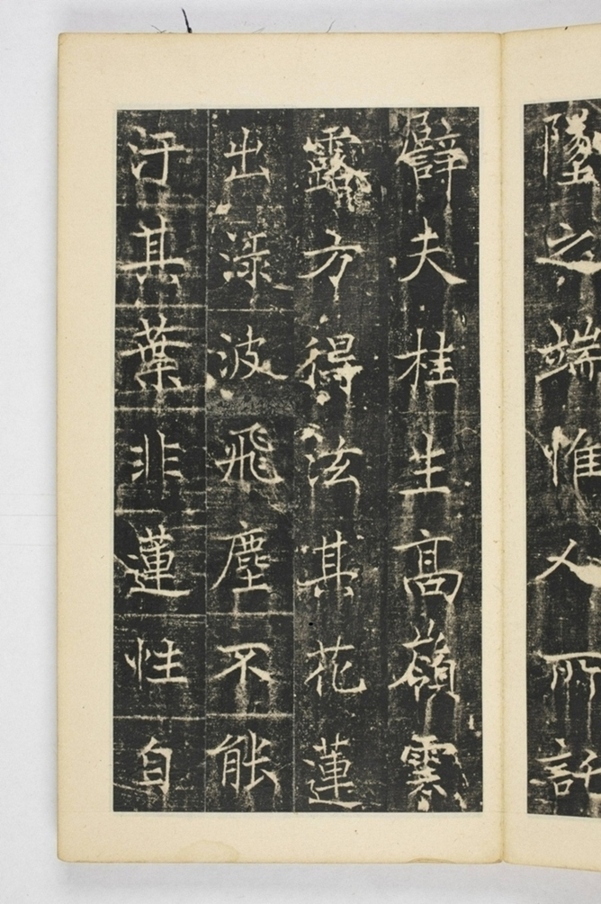 墜之端惟人所託
譬夫桂生髙嶺雲
露方得泫其花蓮
出淥波飛塵不能
汙其葉非蓮性自